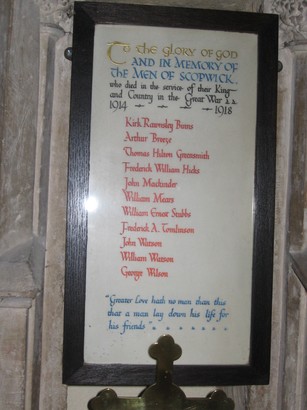 To the glory of God
and in Memory of
the Men of Scopwick.
who died in the service of their King
and Country in the Great War
1914 1918
Kirk Rawnsley Burns
Arthur Breeze
Thomas Hilton Greensmith
Frederick William Hicks
John Mackinder
William Mears
William Ernest Stubbs
Frederick A. Tomlinson
John Watson
William Watson
George Wilson
"Greater Love hath no man than this
that a man lay down his life for
his friends"